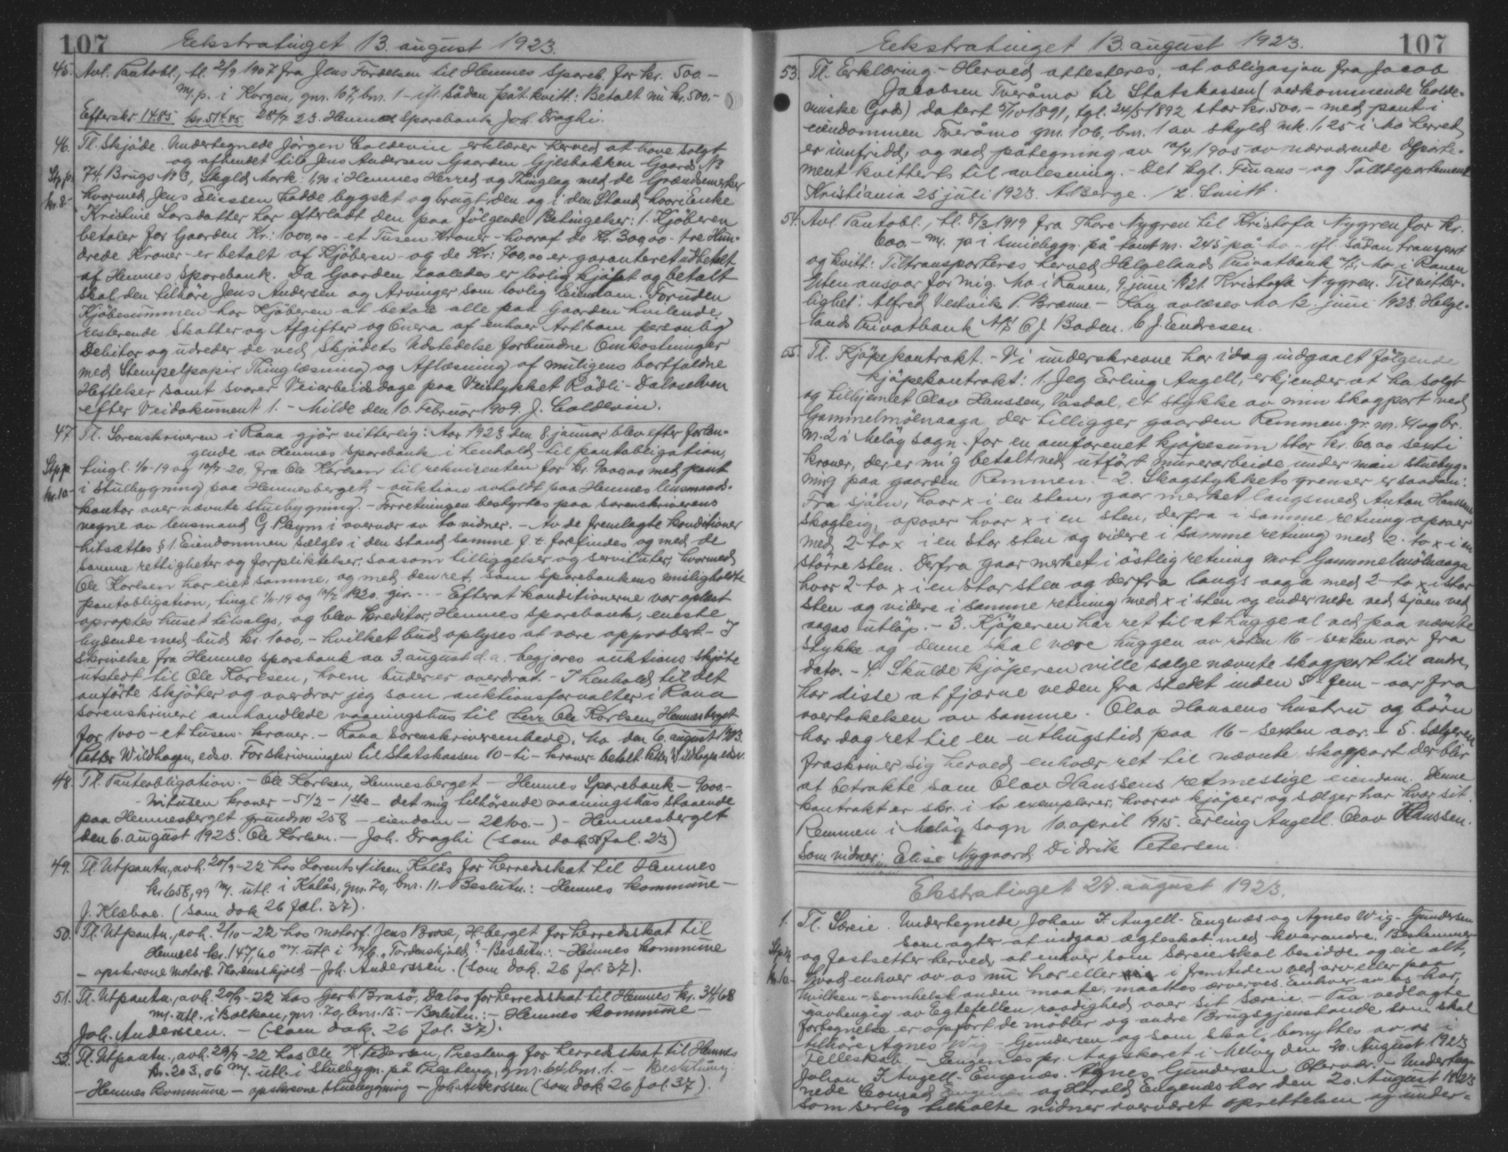 107 Ekstratinget 13. august 1923.
45. Avl. Pantobl., tl. 2/9 1907 fra Jens Tordelsen til Hemnes Spareb. for kr. 500.-
m. p. i Korgen, gnr. 67, bnr. 1 - efl. sådan påt. kvitt: Betalt nu kr. 500,-
Efterskr 14.85 kr. 514.85 28/7 23. Hemnes Sparebank Joh. Draghi.
46. Tl. Skjøde. Undertegnede Jörgen Coldevin erklærer herved at have solgt
og afhendet til Jens Andersen Gaarden Gjelbakken Gaards No
Stp.p. 74, Brugs No 3, Skyld Mark: 1,90 i Hemnes Herred og Thinglag med de Grændsemerker
kr. 8- hvormed Jens Eliessen hadde bygslet og brugt den og i den Stand, hvori Enke
Kristine Larsdatter har efterladt den paa følgende Betingelser: 1. Kjøberen
betaler for Gaarden Kr: 1000,00 - et Tusen Kroner - hvoraf de Kr. 300,00 - tre Hun-
drede Kroner - er betalt af Kjøberen - og de Kr: 700,00 er garanteret udbetalt
af Hemnes Sparebank. Da Gaarden saaledes er lovlig kjøpt og betalt
skal den tilhöre Jens Andersen og Arvinger som lovlig Eiendom. Foruden
Kjøbesummen har Kjøberen at betale alle paa Gaarden hvilende,
resterende Skatter og Afgifter og Onera af enhver Art som personlig
Debitor og udreder de ved Skjødets Udstedelse forbundne Omkostninger
med Stempelpapir Thinglæsning og Aflæsning af muligens bortfaldne
Heftelser samt svarer Veiarbeidsdage paa Veistykket Rødli - Daloselven
efter Veidokument 1. - Milde den 10. Februar 1909. J. Coldevin.
47. Tl. Sorenskriveren i Rana gjør vitterlig: Aar 1923 den 8 januar blev efter forlan-
gende av Hemnes Sparebank i henhold til pantobligation,
Stp.p. tingl. 1/10-19 og 12/7-20 fra Ole Karlsen til rekvirenten for kr. 9000,00 med pant
kr. 10.- i stuebygning paa Hemnesberget - auktion avholdt paa Hemnes lensmands-
kontor over nævnte stuebygning. - Forretningen bestyrtes paa sorenskriverens
vegne av lensmand G. Pleym i overvær av to vidner. - Av de fremlagte konditioner
hitsættes § 1 Eiendommen sælges i den stand samme f. t. forefindes og med de
samme rettigheter og forpliktelser, saasom tilliggelser og servituter, hvormed
Ole Karlsen har eiet samme, og med den ret, som sparebankens misligholdte
pantobligation, tingl 1/10-19 og 12/7 1920 gir. - - - Efterat konditionerne var oplæst
opraptes huset tilsalgs, og blev kreditor, Hemnes sparebank, eneste
bydende med bud kr. 1000,- hvilket bud oplyses at være approbert. - I
skrivelse fra Hemnes sparebank av 3. august d. a. begjæres auktions skjøte
utstedt til Ole Karlsen, hvem budet er overdrat. - I henhold til det
anførte skjøter og overdrar jeg som auktionsforvalter i Rana
sorenskriveri omhandlede vaaningshus til herr Ole Karlsen, Hemnesberget
for 1000 - et tusen - kroner. - Rana sorenskriverembede, Mo den 6. august 1923.
Petter Wildhagen, edsv. Forskrivningen til Statskassen 10 - ti - kroner betalt Petter Wildhagen edsv.
48. Tl. Pantobligation. - Ole Karlsen, Hemnesberget - Hemnes Sparebank - 9000.-
- Nitusen kroner - 5 1/2 - 1ste - det mig tilhörende vaaningshus staaende
paa Hemnesberget grundnr 258 - eiendom - 2000.-) - Hemnesberget
den 6. august 1923. Ole Karlsen. - Joh. Draghi (som dok fol. 23)
49. Tl. Utpantn., avh. 20/9-22 hos Lorents Nilsen Kalås for herredsskat til Hemnes
kr. 658,99 m. utl. i Kalås, gnr. 70, bnr. 11. - Beslutn: - Hemnes kommune -
J. Klæboe. (som dok 26 fol. 37).
50. Tl. Utpantn., avh. 2/10-22 hos motorf. Jens Broe, H.berget for herredsskat til
Hemnes kr. 147,60 m. utl. i M/k. "Tordenskjold." - Beslutn: - Hemnes kommune
- opskrevne motorb. Thordenskjold - Joh. Anderssen. (som dok. 26 fol. 37).
51. Tl. Utpantn., avh. 20/9-22 hos Gerh Brasö, Dalos for herredsskat til Hemnes kr. 34,68
m. utl. i Balkan, gnr. 70, bnr. 15. - Beslutn: - Hemnes kommune -
Joh. Anderssen. - (som dok. 26 fol. 37).
52. Tl. Utpantn., avh. 29/9-22 hos Ole K. Pedersen, Presteng for herredsskat til Hemnes
kr. 203,06 m. utl. i Stuebygn. på Presteng, gnr. bnr. 1. - Beslutning
- Hemnes kommune - opskrevne stuebygning - Joh. Anderssen (som dok 26 fol. 37).
Ekstratinget 13. august 1923. 107
53. Tl. Erklæring. - Herved attesteres, at obligasjon fra Jacob
Jacobsen Tveråmo til Statskassen (vedkommende Colde-
vinske Gods) datert 5/10 1891, tgl. 24/5 1892 stor kr. 500,- med pant i
eiendommen Tveråmo gnr. 106, bnr. 1 av skyld mk. 1,25 i Mo herred,
er innfridd, og ved påtegning av 12/4 1905 av nærværende departe-
ment kvittert til avlesning. - Det kgl. Finans- og Tolldepartement
Kristiania 25 juli 1923. A. Berge. / L. Smith.
54. Avl. Pantobl. tl. 8/3 1919 fra Thore Nygren til Kristofa Nygren for kr.
600,- m. p. i Smiebygn. på tomt nr. 245 på Mo - efl. Sådan transport
og kvitt: Tiltransporteres herved Helgelands Privatbank A/S, Mo i Ranen
Uten ansvar for mig. Mo i Ranen, 9 juni 1921. Kristofa Nygren. Til vitter-
lighet: Alfred Vestvik P. Brænne - Kan avlæses Mo juni 1923 Helge-
lands Privatbank A/S C J. Boden. C J. Endresen.
55. Tl. Kjöpekontrakt. - Vi underskrevne har idag indgaalt fölgende
kjöpekontrakt: 1. Jeg Erling Angell, erkjender at ha solgt
og tilhjemlet Olav Hanssen, Vasdal, et stykke av min skogport ved
Gammelmölnaaga, der tilligger gaarden Remmen gr. nr. 41 og br.
nr. 2 i Melöy sogn - for en omforenet kjöpesum stor kr. 60,00 seksti
kroner, der er mig betalt ved utfört murerarbeide under min stuebyg-
ning paa gaarden Remmen. - 2. Skogstykkets grenser er saadan:
Fra sjøen, hvor x i en sten, gaar merket langsmed Anton Hanssens
skogteig, opover hvor x i en sten, derfra i samme retning opover
med 2 - to x i en stor sten og videre i samme retning med 2 - to x i en
större sten. Derfra gaar merket i östlig retning mot Gammelmölnaaga
hvor 2 - to x i en stor sten og derfra langs aaga med 2 - to x i stor
sten og videre i samme retning med x i sten og ender nede ved sjøen ved
aagas utløp. - 3. Kjöperen har ret til at hugge al ved paa nævnte
stykke og denne skal være huggen av roten 16 - sexten aar fra
dato. - 4. Skulde kjöperen ville sælge nævnte skogport til andre,
har disse at fjærne veden fra stedet inden 5 - fem - aar fra
overtakelsen av samme. Olav Hansens hustru og börn
har dog ret til en uthugstid paa 16 - sexten aar. - 5. Sælgeren
fraskriver sig herved enhver ret til nævnte skogport der blir
at betrakte som Olav Hanssens retmessige eiendom. Denne
kontrakt er skr. i to exemplarer, hvorav kjøper og sælger har hver sit.
Remmen i Melöy sogn 10. april 1915. Erling Angell. Olav Hanssen.
Som vidner: Elise Nygaard Didrik Petersen.
Ekstratinget 27. august 1923.
1. Tl. Særeie. Undertegnede Johan F. Angell - Engenæs og Agnes Wig - Gundersen
som agter at indgaa ægteskab med hverandre, Bestemmer
Stp.p. og fastsetter herved, at enhver som Særeie skal besidde og eie alt,
kr. 10.- hvad enhver av os nu har eller i fremtiden ved arv eller paa
hvilken-somhelst anden maate, maattes erverves. Enhver av os har,
uavhengig av Egtefellen, raadighed over sit Særeie. - Paa vedlagte
fortegnelse er opfört de möbler og andre Brugsgjenstande som skal
tilhöre Agnes Wig - Gundersen og som skal benyttes av os i
Fellesskab - Engenæs pr. Aagskaret i Melöy den 20. August 1923
Johan F. Angell - Engenæs. Agnes Gundersen - Undertegn-
nede Conrad og Harald Engenæs har den 20. August 1923
som særlig tilkaldte vidner overværet oprettelsen og under-